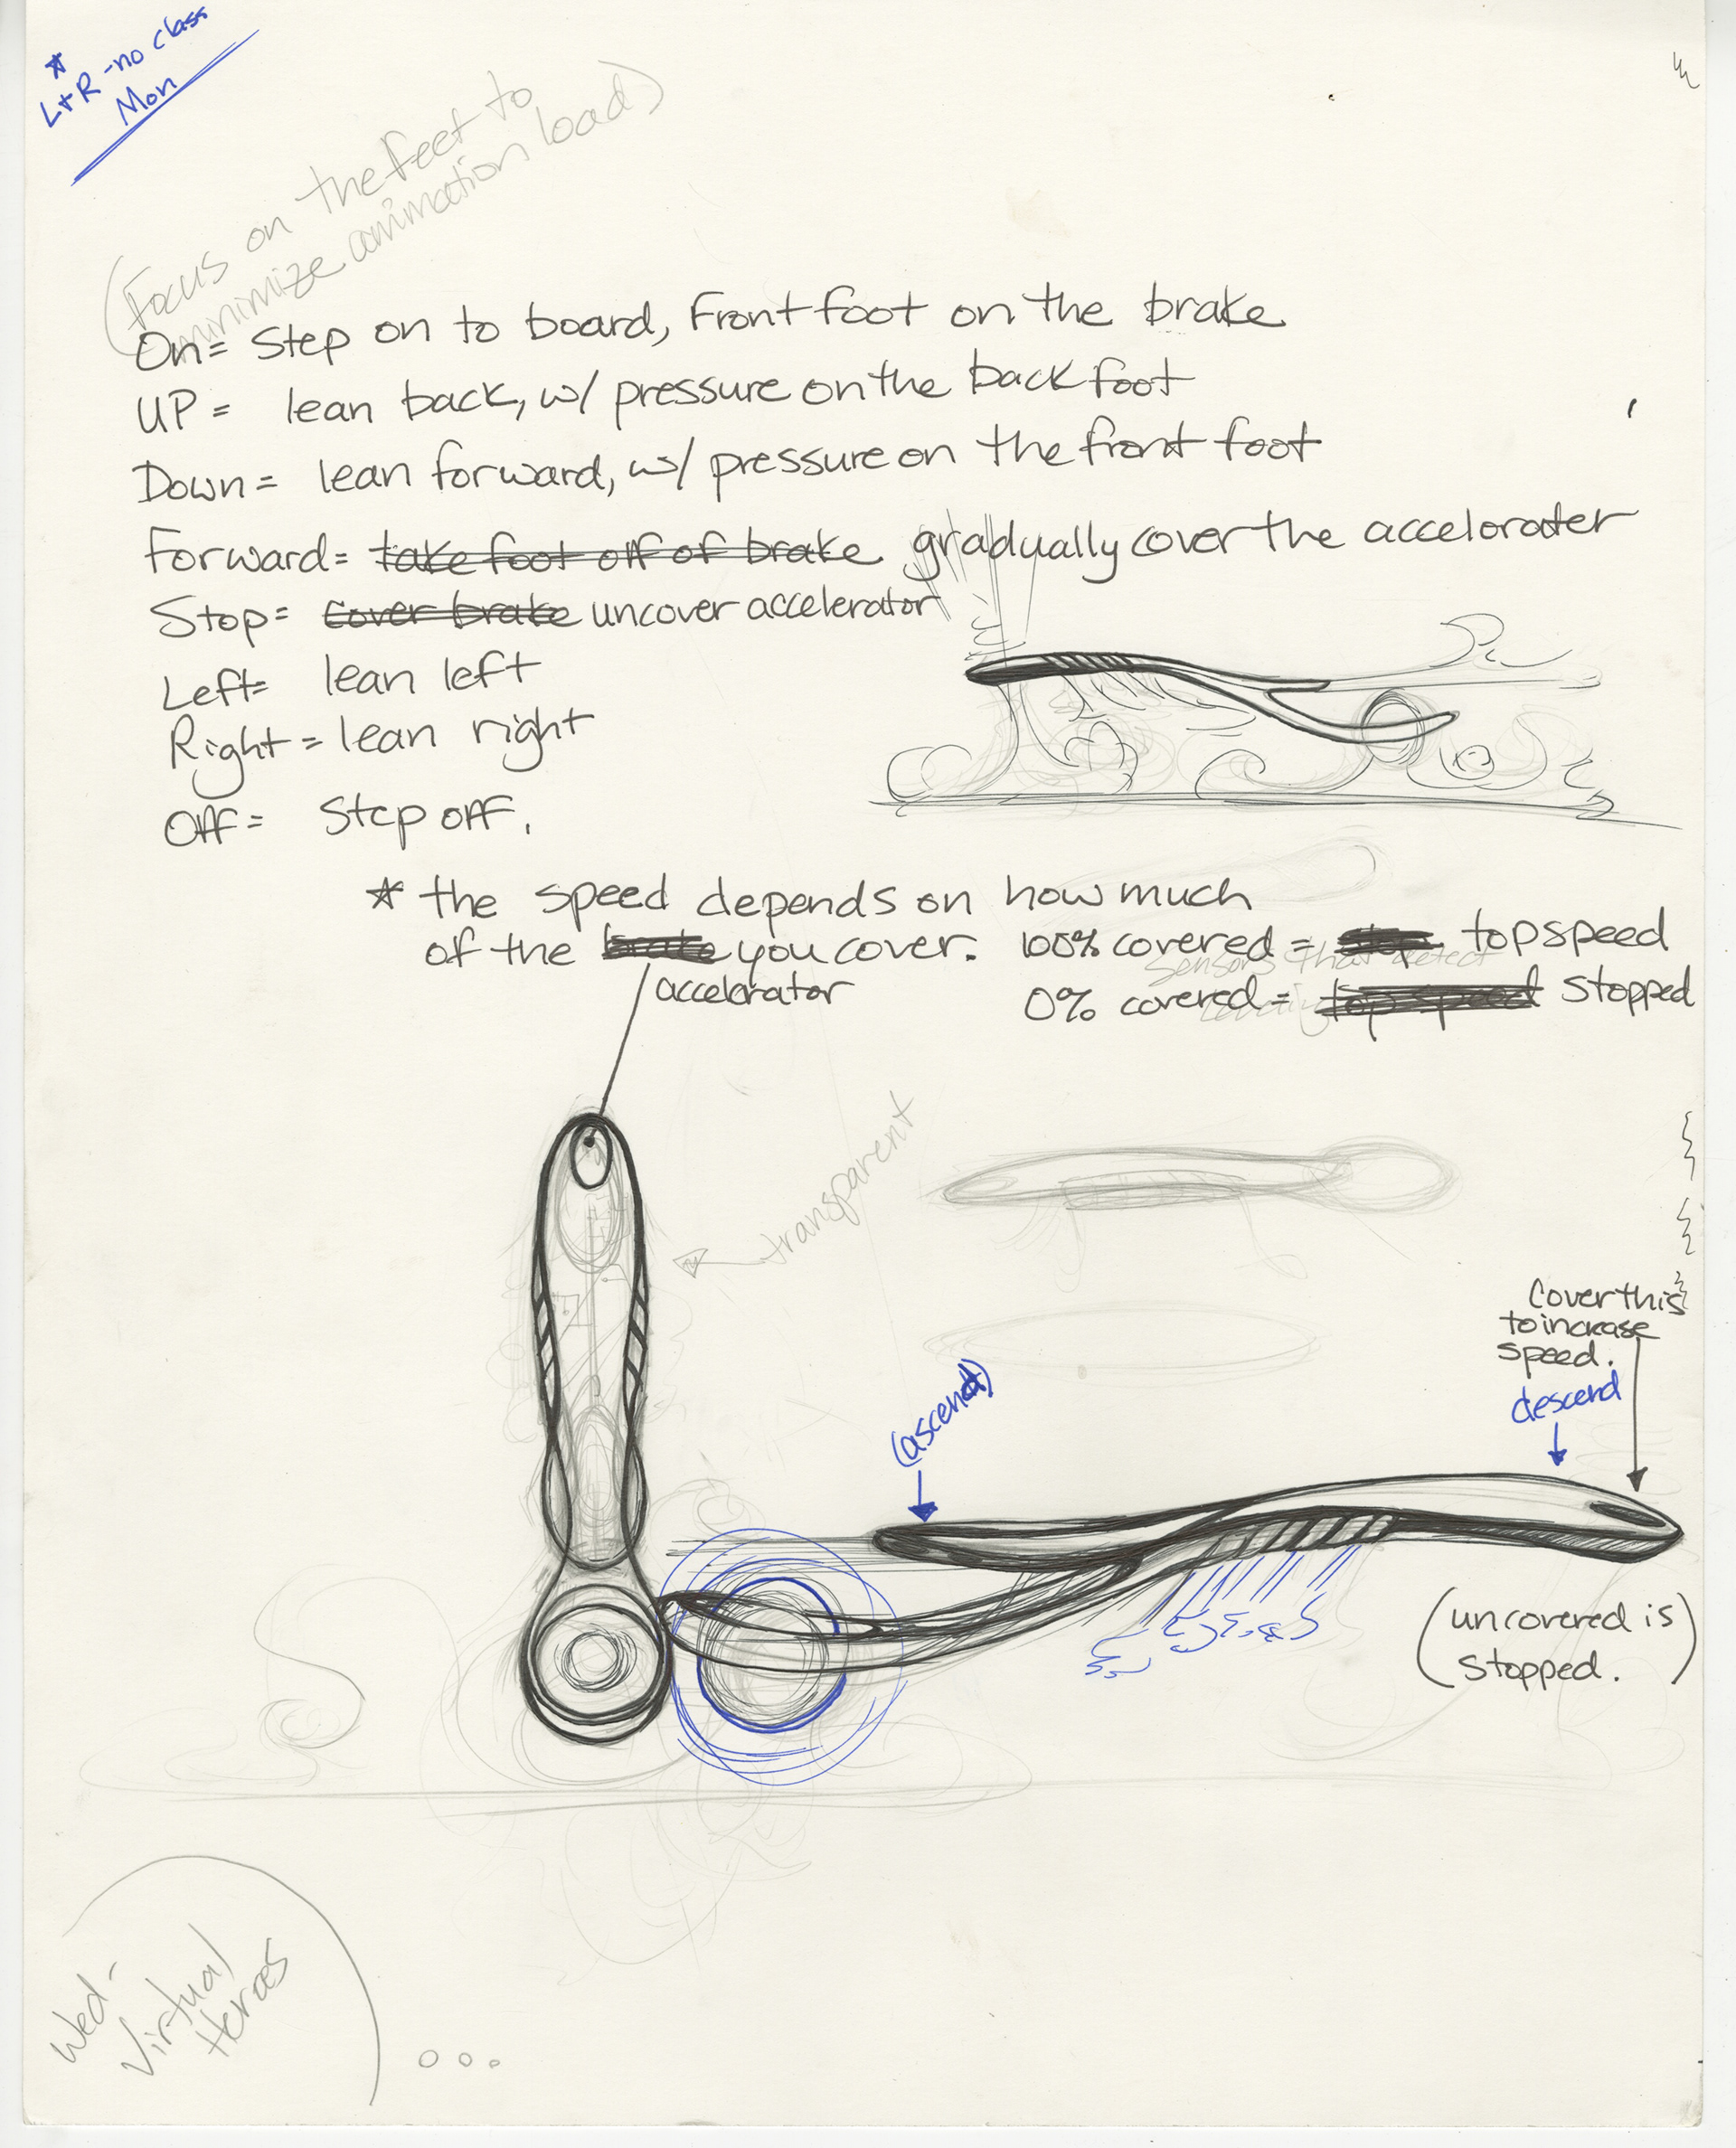 * L+R - no class
Mon
(Focus on the feet to
minimize animation load)
On = Step on to board, Front foot on the brake
UP = lean back, w/ pressure on the back foot
Down = lean forward, w/ pressure on the front foot
Forward = take foot off of brake gradually cover the accelorater
Stop = cover brake uncover accelerator
Left = lean left
Right = lean right
Off = Step off.
* the speed depends on how much
of the brake you cover. 100% covered = stop top speed
accelerator
sensors that detect
0% covered = top speed stopped
transparent
Cover this
to increase
speed.
descend
(ascend)
(uncovered is
stopped.)
Wed -
Virtual
Heroes